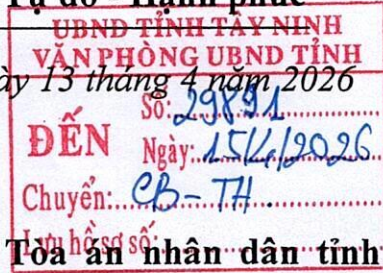 Tự do - Hạnh phúc
UBND TỈNH TÂY NINH
VĂN PHÒNG UBND TỈNH
ày 13 tháng 4 năm 2026
Số: 29891
ĐẾN
Ngày: 15/4/2026
Chuyển: CB - TH.
Lưu hồ sơ số:
Tòa án nhân dân tỉnh